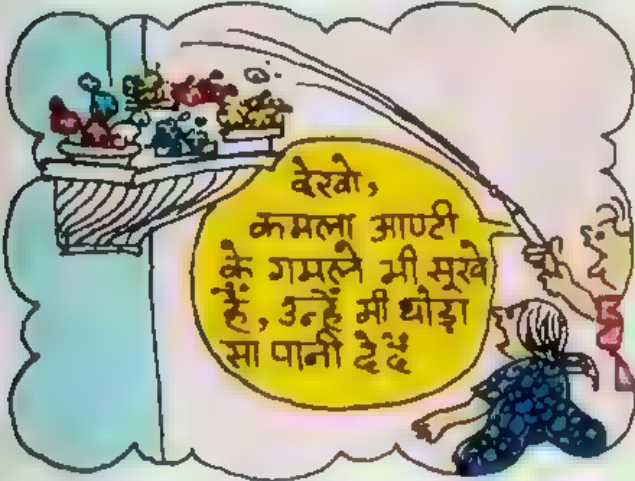 देखो,
कमला आण्टी
के गमले भी सूखे
हैं, उन्हें भी थोड़ा
सा पानी दे दें